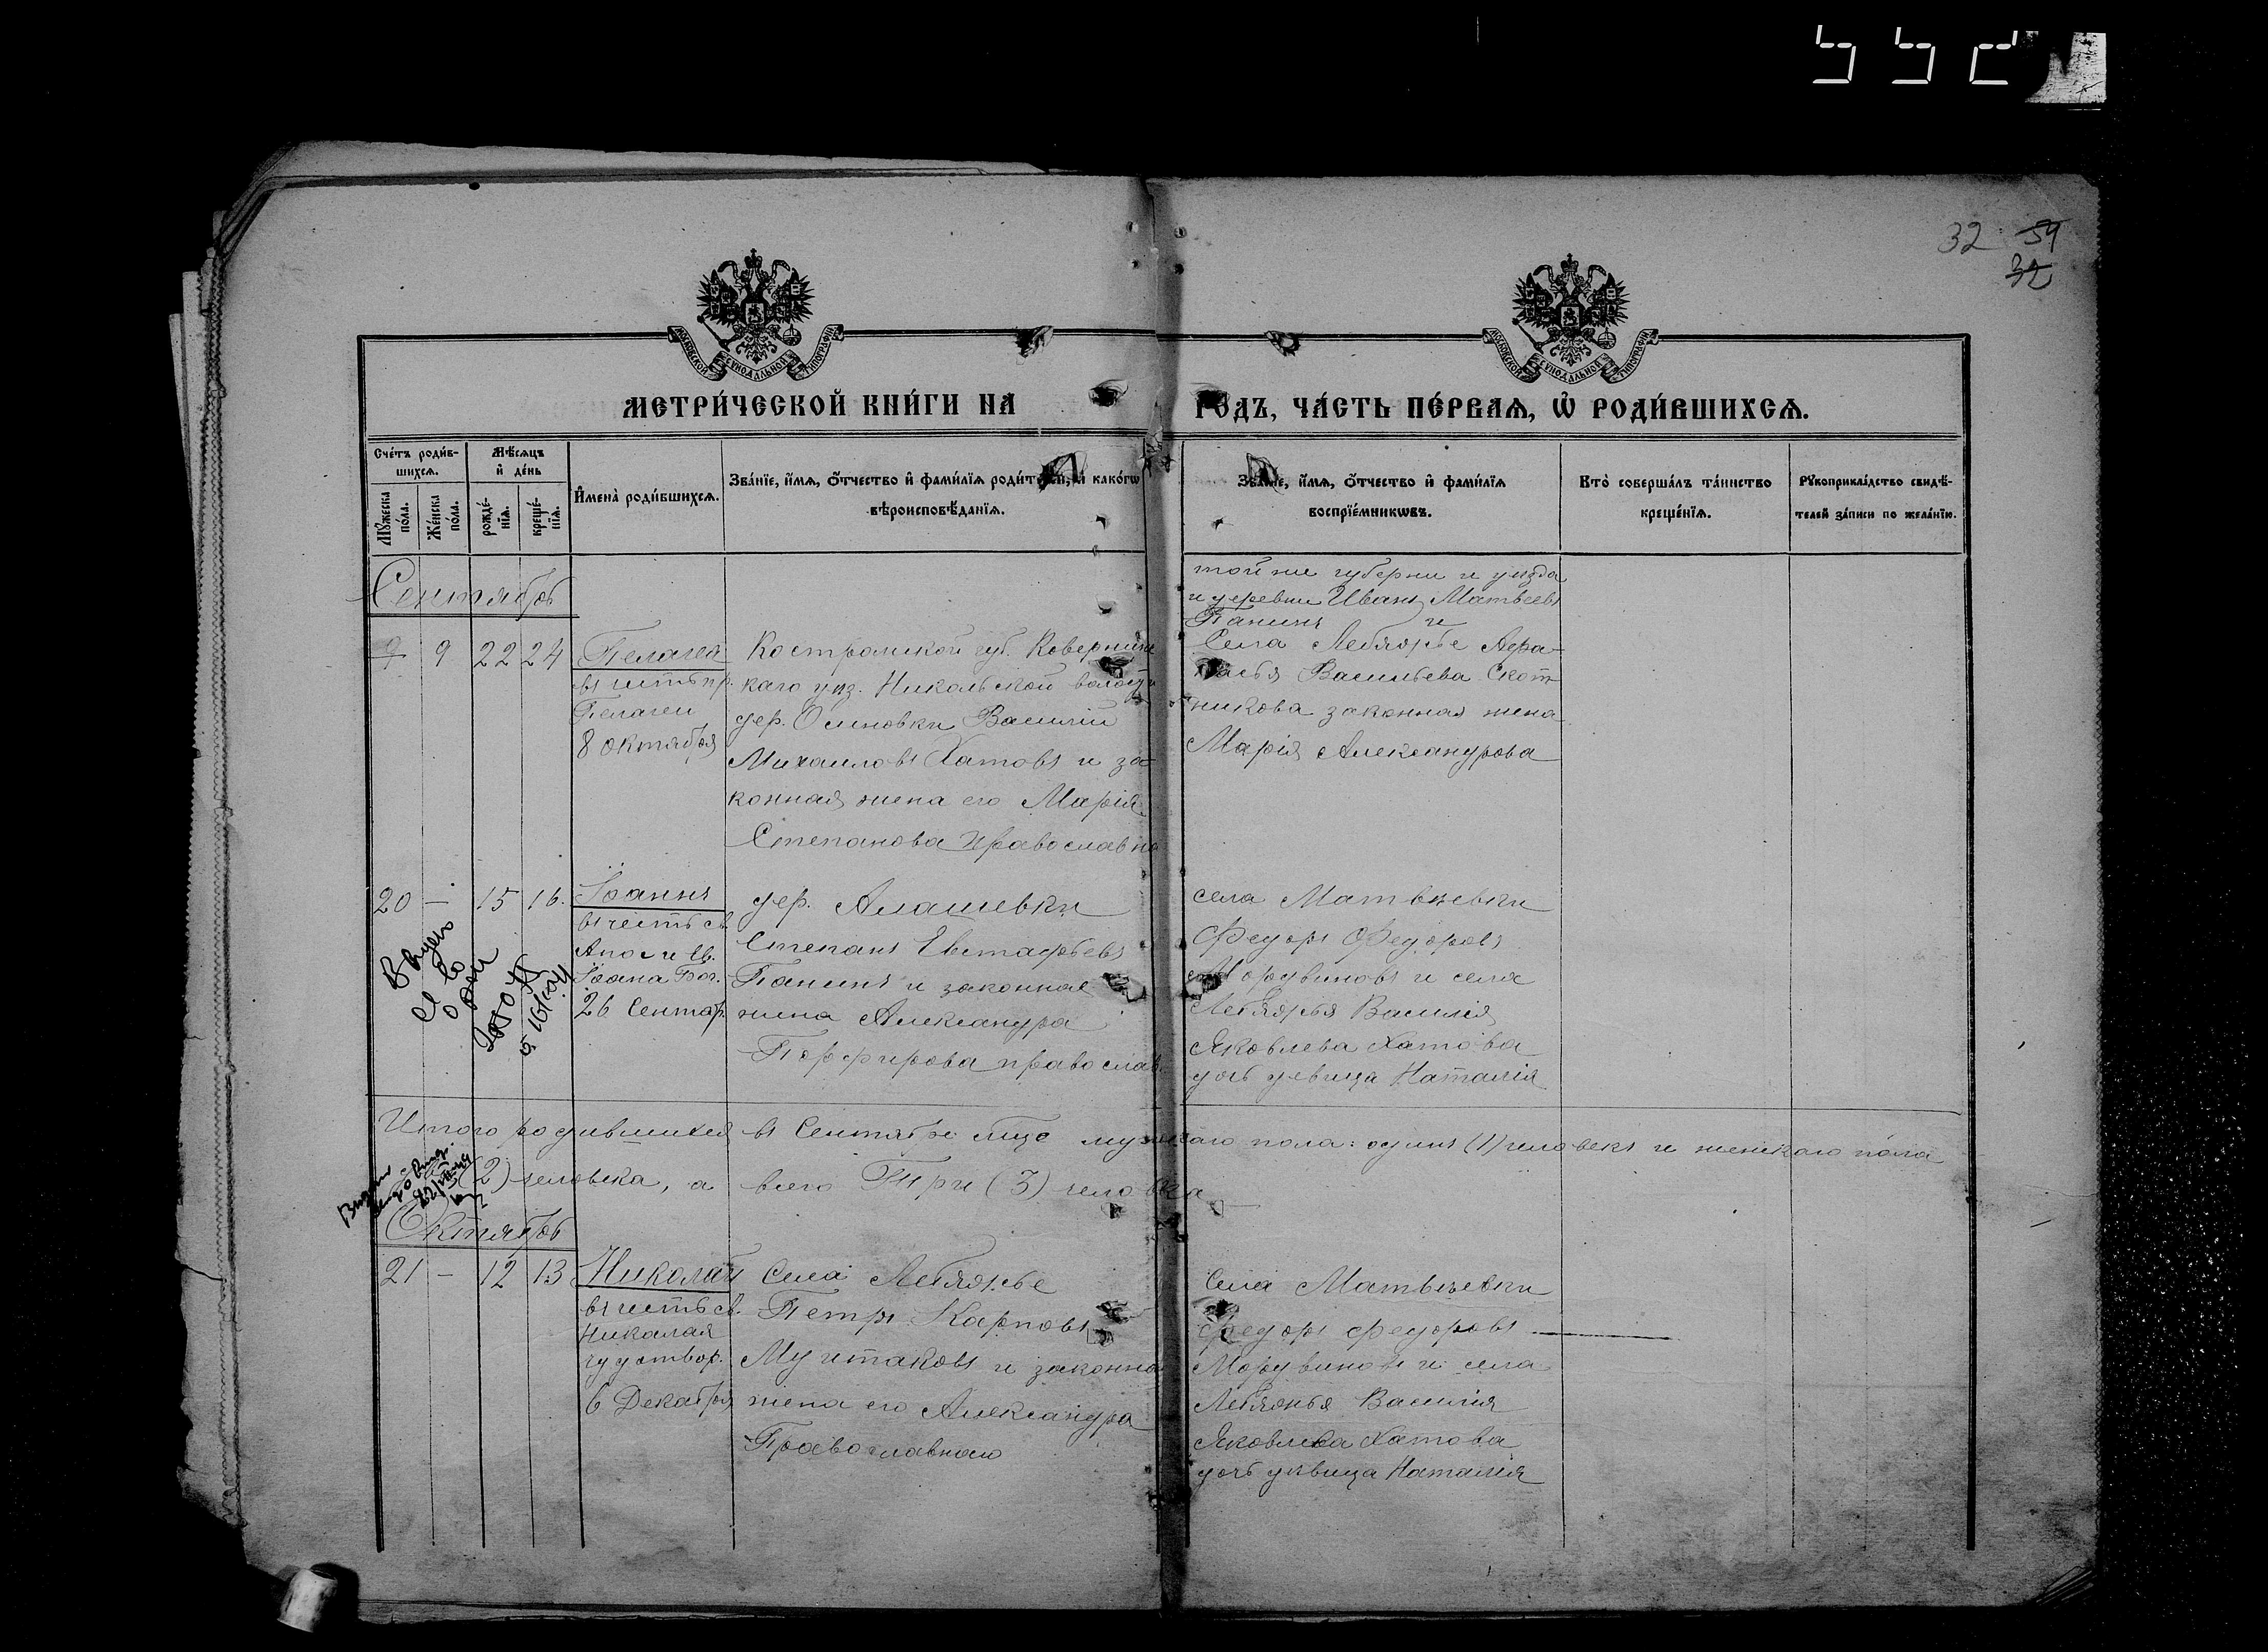 32 54
32
МОСКОВСКОЙ СѴНОДАЛЬНОЙ ТИПОГРАФІИ
МОСКОВСКОЙ СѴНОДАЛЬНОЙ ТИПОГРАФІИ
МЕТРИ́ЧЕСКОЙ КНИ́ГИ НА ГОДЪ, ЧА́СТЬ ПЕ́РВАѦ, Ѡ҆ РОДИ́ВШИХСѦ.
Сче́тъ роди́в-
шихсѧ.
Мѣ́сѧцъ
и҆ де́нь
Мꙋ́жеска
по́ла.
Же́нска
по́ла.
рожде́-
нїѧ.
креще́-
нїѧ.
И҆мена̀ роди́вшихсѧ.
Зва́нїе, и҆́мѧ, ѻ҆́тчество и҆ фами́лїѧ роди́телей, и҆ како́гѡ
вѣроисповѣ́данїѧ.
Зва́нїе, и҆́мѧ, ѻ҆́тчество и҆ фами́лїѧ
воспрїе́мникѡвъ.
Кто̀ соверша́лъ та́инство
креще́нїѧ.
Рꙋкоприкла́дство свидѣ́-
телей за́писи по жела́нїю.
Сентябрь
9 9 22 24
Пелагея
въ честь пр.
Пелагеи
8 Октября
Костромской губ. Ковернинс
каго уѣз. Никольской волости
дер. Осиновки Василій
Михаиловъ Хатовъ и за
конная жена его Марія
Степанова Православно
той же губерни и уѣзда
и деревни Иванъ Матвеевъ
Панинъ и
Села Лебяжье Афа-
насья Васильева Скот
никова законная жена
Марія Александрова
20 — 15 16.
Іоаннъ
въ честь св.
Апос и Ев.
Іоана Бог.
26 Сентяр.
дер. Алашевки
Степанъ Евстафьевъ
Панинъ и законная
жена Александра
Порфирова православ.
села Матвѣевки
Федоръ Федоровъ
Мордвиновъ и села
Лебяжья Василія
Яковлева Хатова
дочь девица Наталія
Итого родившихся въ Сентябре м-це мужскаго пола: одинъ (1) человекъ и женскаго пола
(2) человека, а всего Три (3) человека
Октябрь
21 — 12 13
Николай
въ честь св.
Николая
чудотвор.
6 Декабря
Села Лебяжье
Петръ Карповъ
Мушtаковъ и законная
жена его Александра
Православнаго
Села Матвѣевки
Федоръ Федоровъ
Мордвиновъ и села
Лебяжья Василія
Яковлева Хатова
дочь дѣвица Наталія